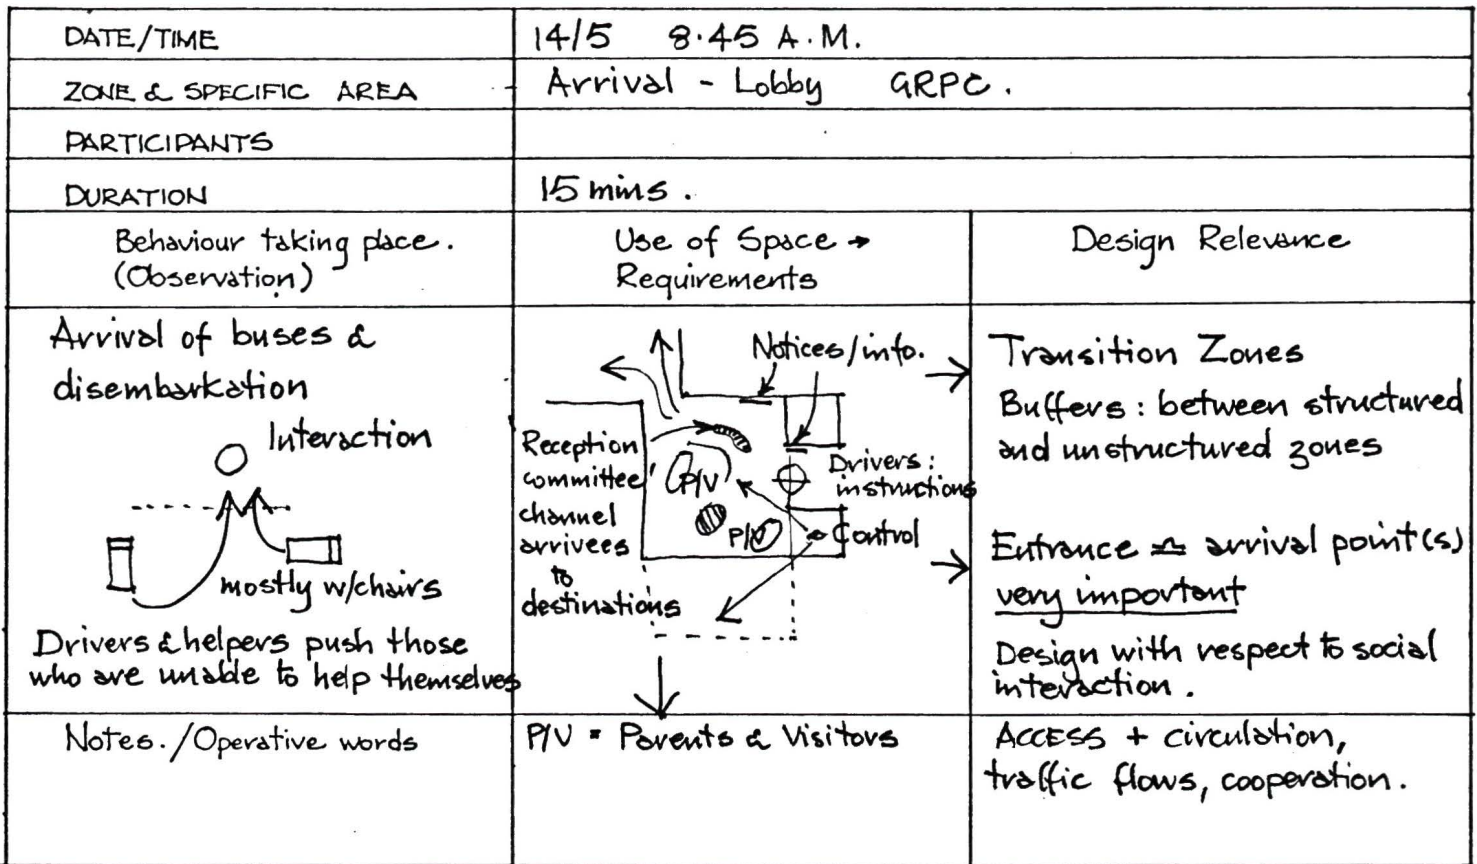 DATE/TIME
14/5 8.45 A.M.
ZONE & SPECIFIC AREA
Arrival - Lobby GRPC.
PARTICIPANTS
DURATION
15 mins.
Behaviour taking place.
(Observation)
Use of Space →
Requirements
Design Relevance
Arrival of buses &
disembarkation
Interaction
mostly w/chairs
Drivers & helpers push those
who are unable to help themselves
Notices/info.
Reception
committee
channel
arrivees
to
destinations
P/V
P/V
Drivers:
instructions
Control
Transition Zones
Buffers: between structured
and unstructured zones
Entrance arrival point(s)
very important
Design with respect to social
interaction.
Notes./Operative words
P/V = Parents & Visitors
ACCESS + circulation,
traffic flows, cooperation.